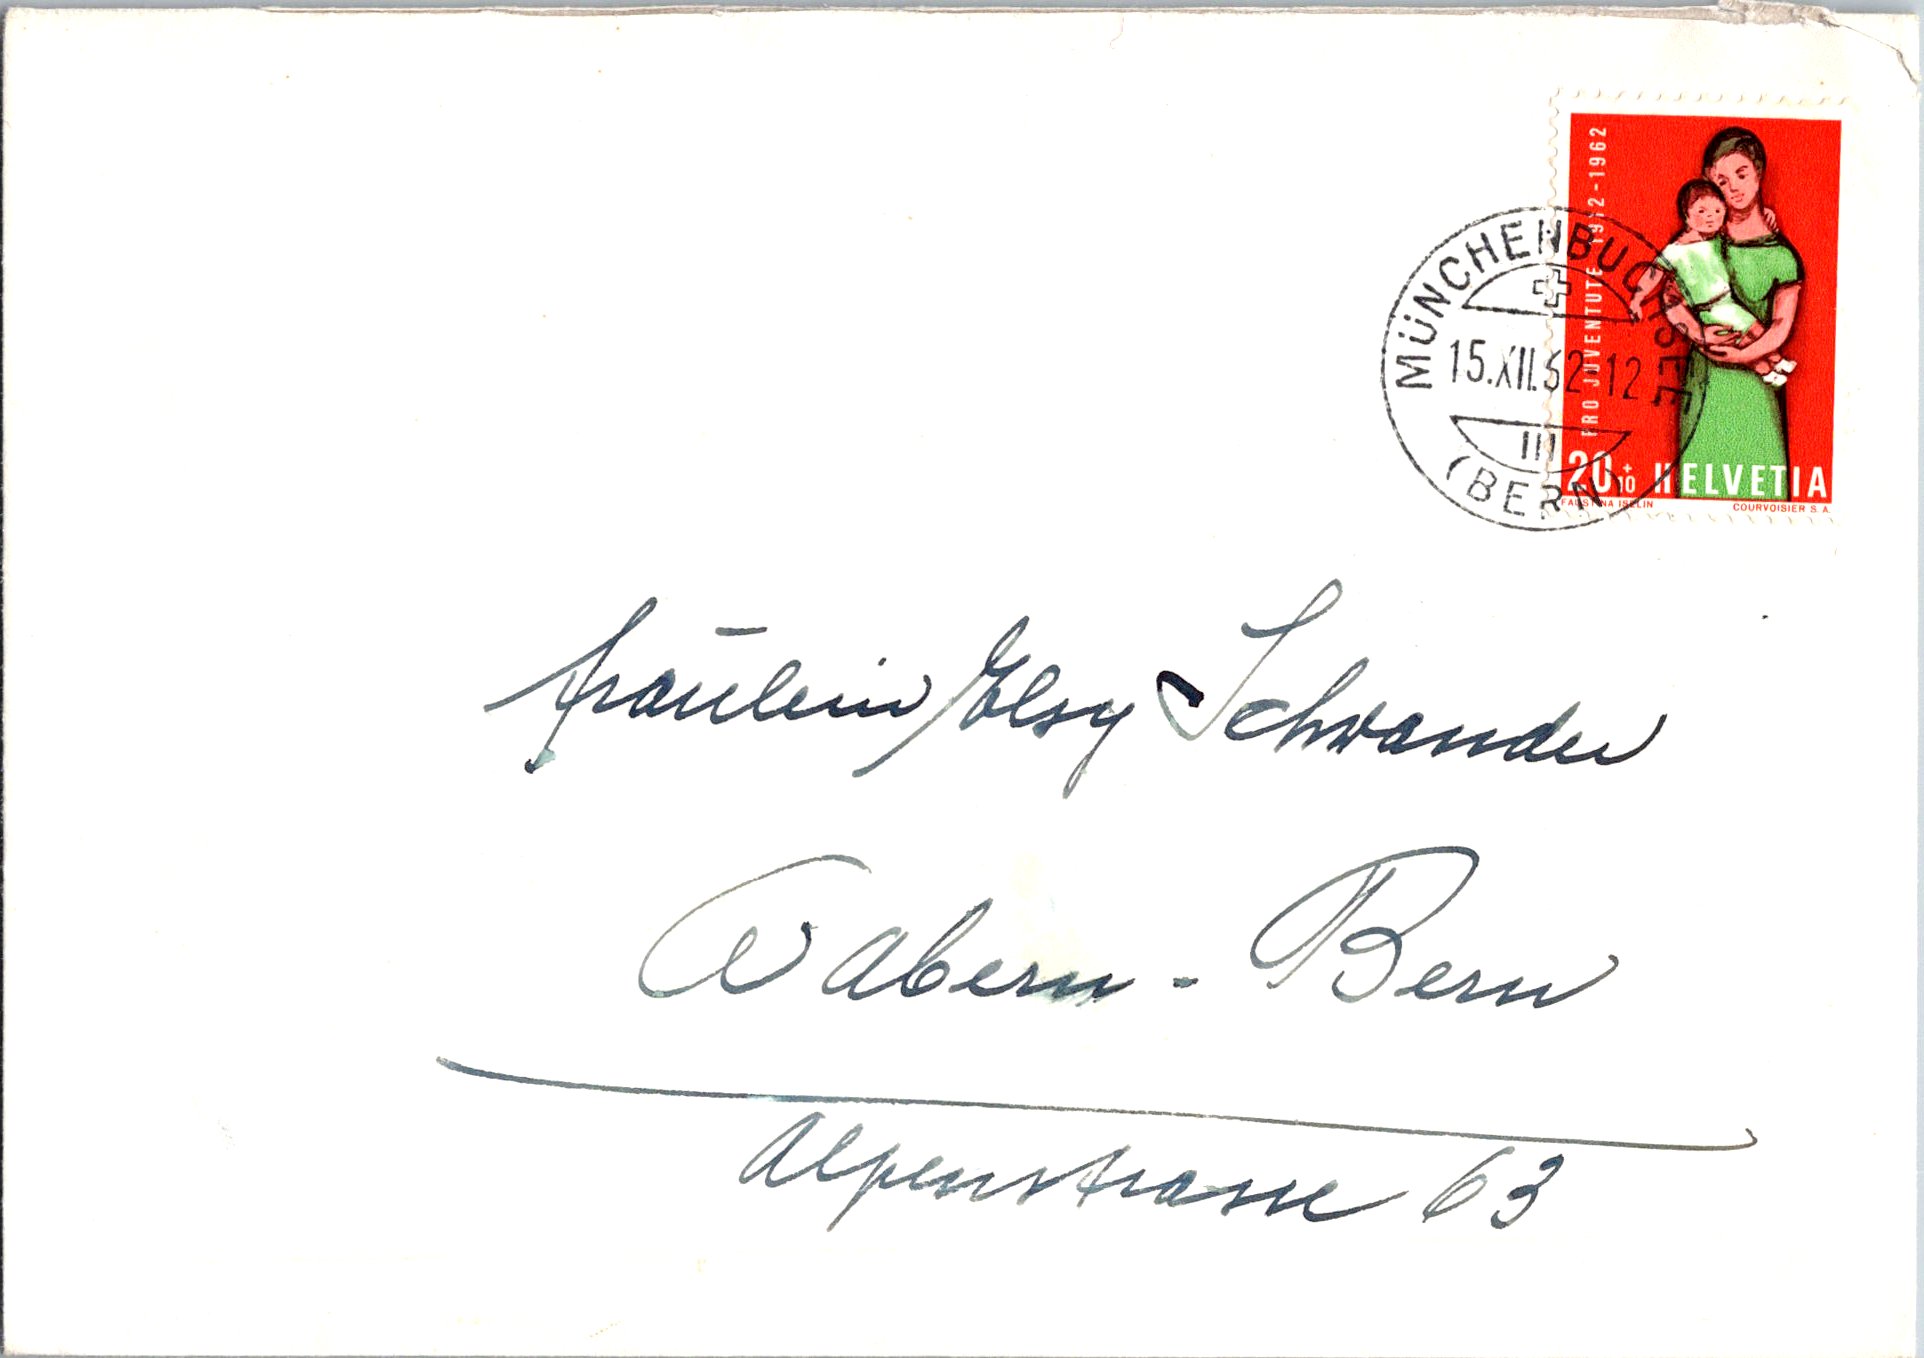 PRO JUVENTUTE 1912-1962
MÜNCHENBUCHSEE
15.XII.62-12
III
(BERN)
20+10 HELVETIA
FAUSTINA ISELIN COURVOISIER S.A.
Fräulein Elsy Schwander
Wabern - Bern
Alpenstrasse 63